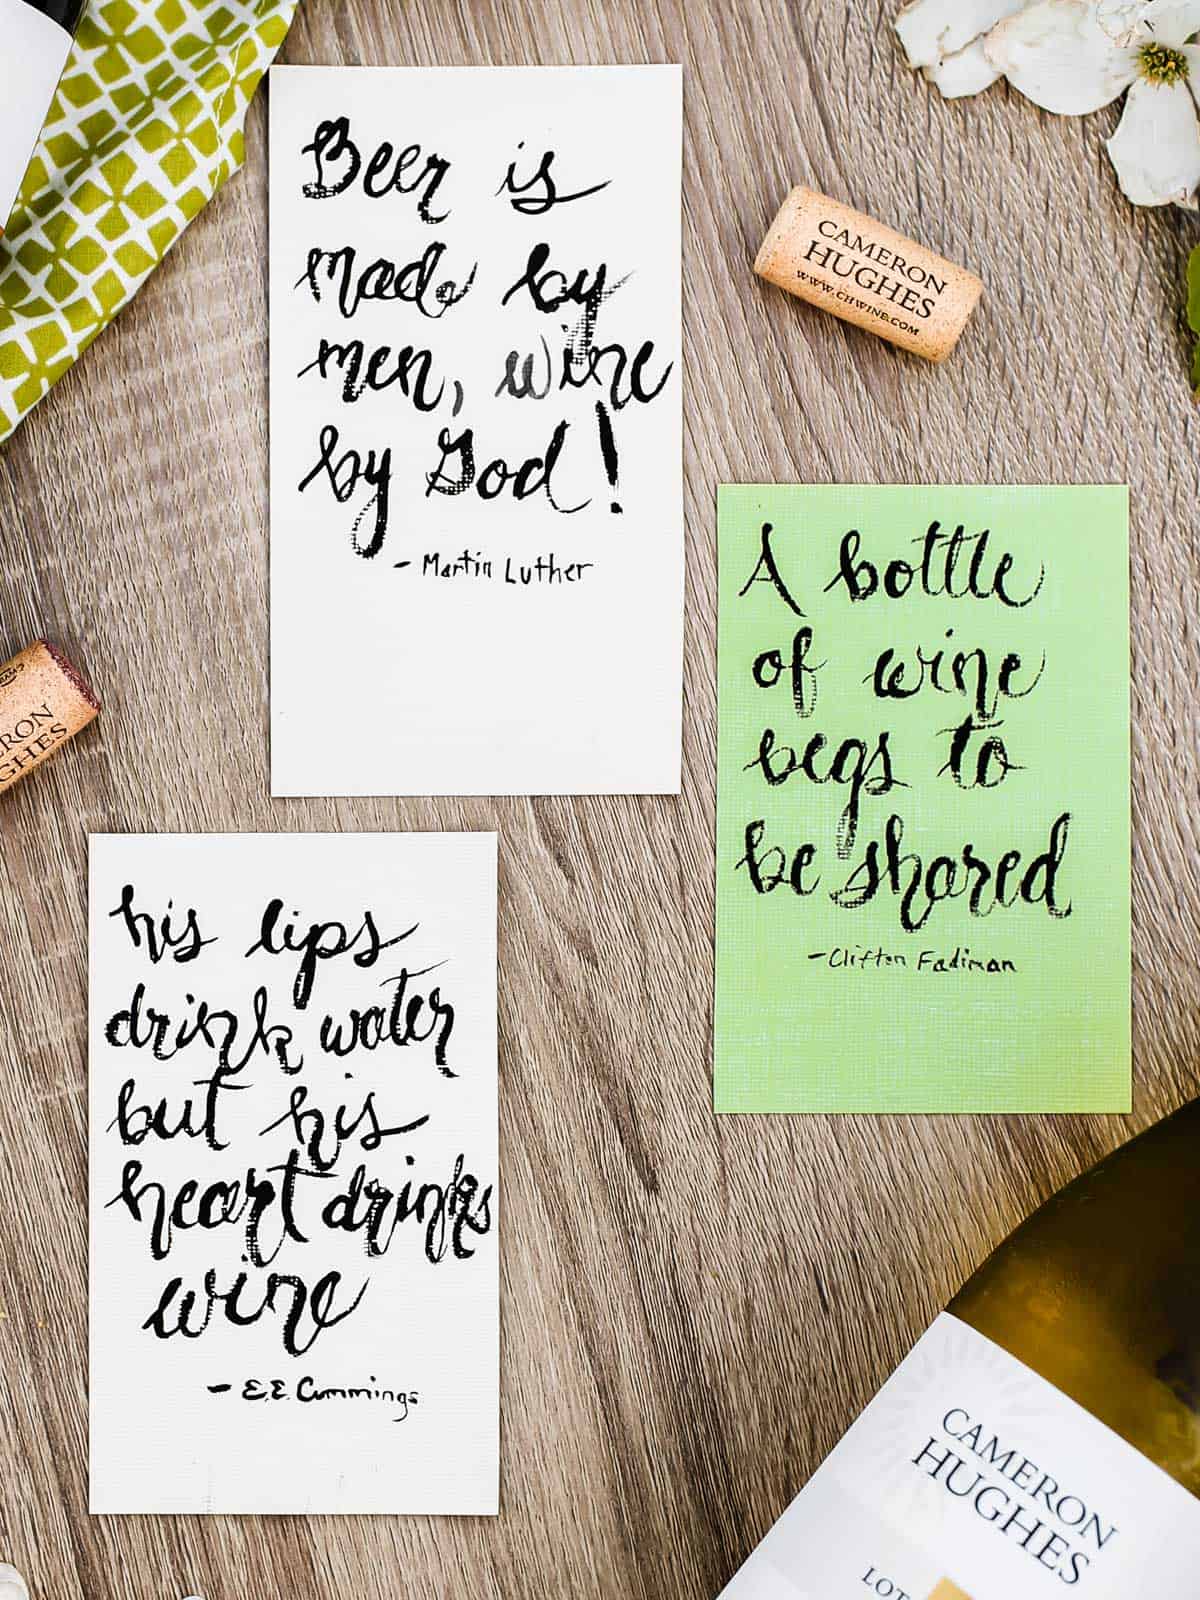 Beer is
made by
men, wine
by God!
- Martin Luther
CAMERON
HUGHES
WWW.CHWINE.COM
A bottle
of wine
begs to
be shared
- Clifton Fadiman
RON
GHES
his lips
drink water
but his
heart drinks
wine
- E.E. Cummings
CAMERON
HUGHES
LOT